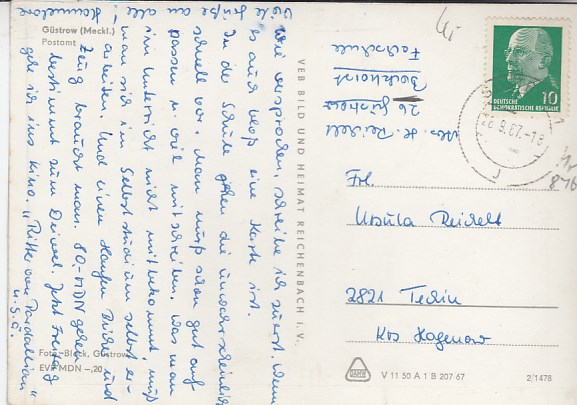 Güstrow (Meckl.)
Postamt
Wie versprochen, schreibe ich zuerst. Wenn
es auch bloß eine Karte ist.
In der Schule gehen die
schnell vor. Man muß schon gut auf-
passen u. viel mitschreiben. Was man
im Unterricht nicht mitbekommt, muß
man sich im Selbststudium selbst er-
arbeiten. Und einen Haufen Bücher und
Zeug braucht man. 80,-MDN gehen
bestimmt zum Teufel. Jetzt Freitag
gehe ich ins Kino. "Ritter von Pardaillan"
u.s.a.
Viele Grüße an
alle
Hannelore
Foto: Black, Güstrow
EVP MDN -,20
VEB BILD UND HEIMAT REICHENBACH I. V.
Abs. H. Reichelt
26 Güstrow
Bockhorst
Fachschule
DEUTSCHE
DEMOKRATISCHE REPUBLIK
10
26.9.67.-18
Frl.
Ursula Reichelt
2821 Teschin
Krs Hagenow
V 11 50 A 1 B 207 67
2/1478